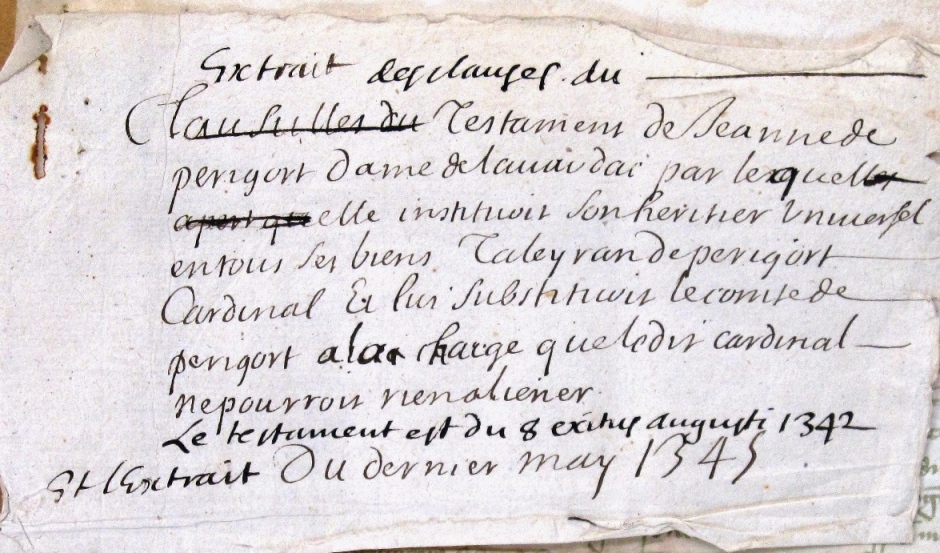 Extrait des clauses du
Clausulles du Testament de Jeanne de
perigort Dame de lavardac par lesquelles
apert que elle instituoit son heritier Universel
en tous ses biens Taleyran de perigort
Cardinal Et lui substituoit le comte de
perigort a la charge que ledit cardinal
ne pourroit rien aliener
Le testament est du 8 exitus augusti 1342
Et l'Extrait Du dernier may 1345